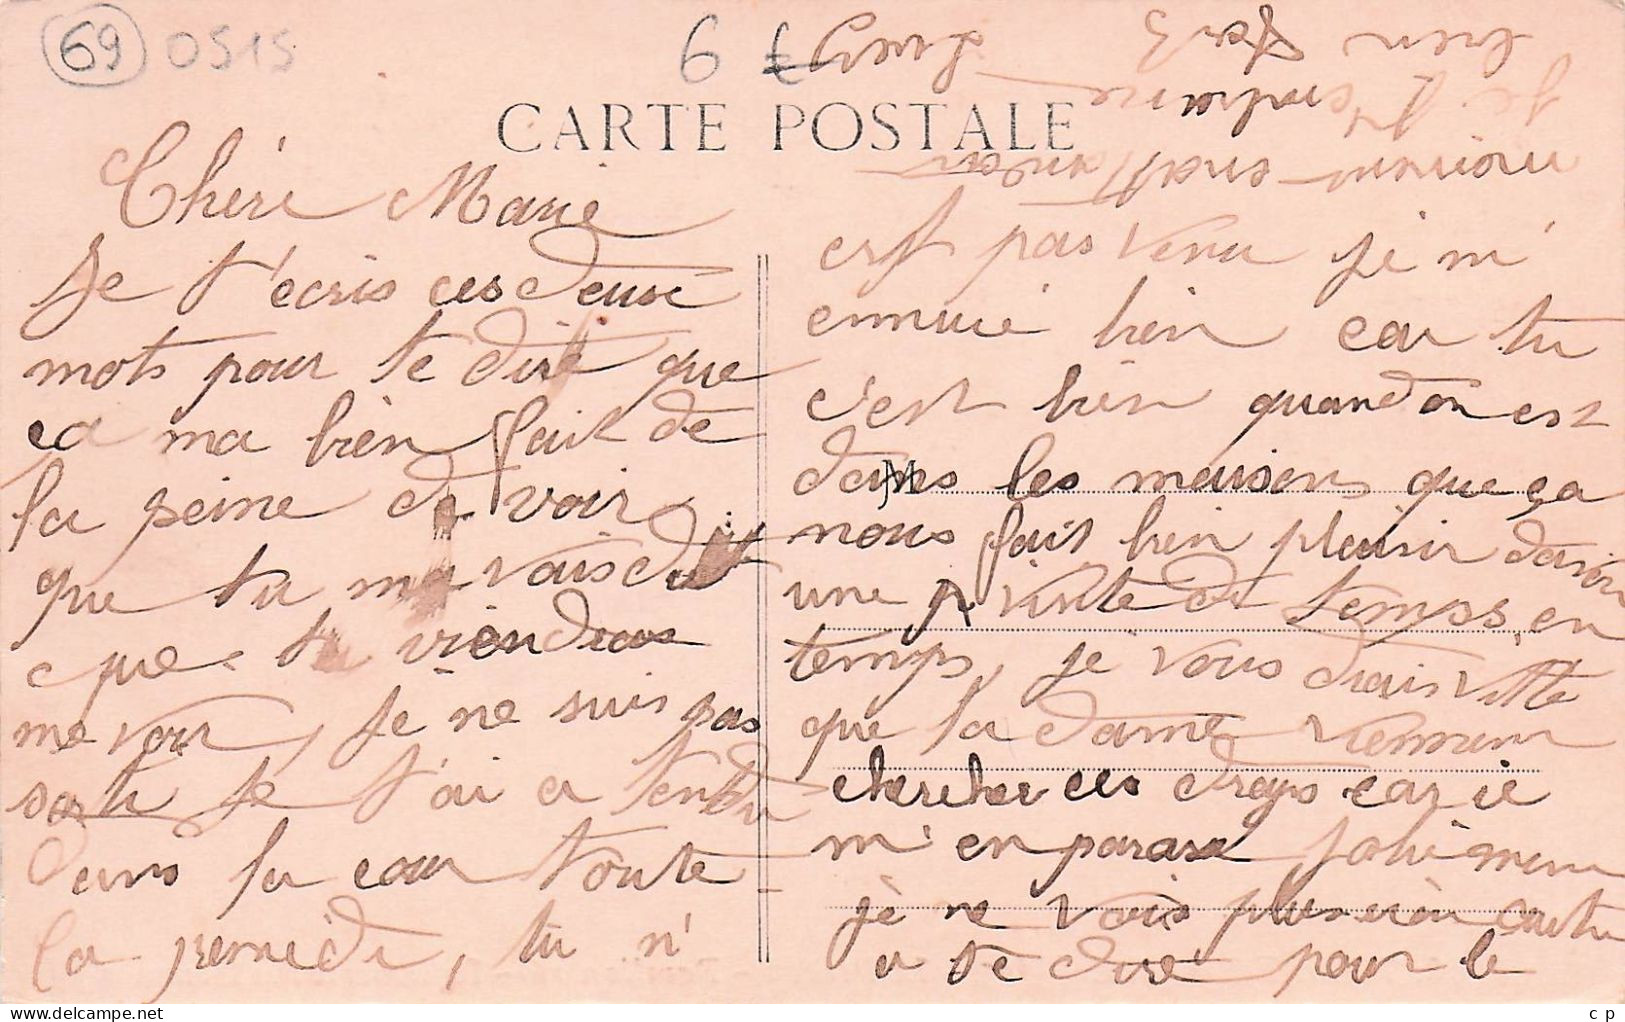 69 0515
6 £
CARTE POSTALE
Chéri Marie
Je t'écris ces deux
mots pour te dire que
ça ma bien fait de
la peine de voir
que tu m'avais du
que tu viendras
me voir, je ne suis pas
sorti je t'ai atendu
dans la cour toute
la premidi, tu n'
est pas venu je m'
ennuie bien car tu
c'est bien quand on est
dans les maisons que ça
nous fait bien plaisir davoir
une visite de temps en
temps, je vous drais vitte
que la dame viennent
chercher ces draps car je
m'en
je ne vois plus rien autre
a te dire pour le
moment en attendant
Je t'embrasse
bien fort
Lucy
M
c p